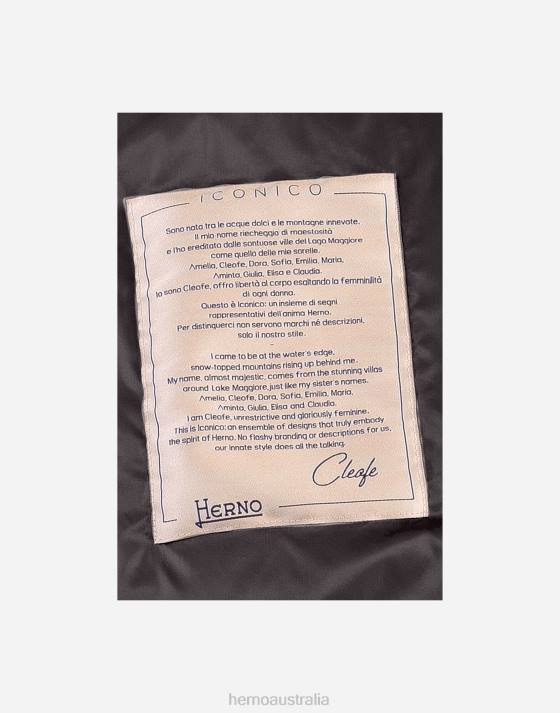 ICONICO
Sono nata tra le acque dolci e le montagne innevate.
Il mio nome riecheggia di maestosità
e l'ho ereditata dalle sontuose ville del Lago Maggiore
come quella delle mie sorelle.
Amelia, Cleofe, Dora, Sofia, Emilia, Maria,
Aminta, Giulia, Elisa e Claudia.
Io sono Cleofe, offro libertà al corpo esaltando la femminilità
di ogni donna.
Questo è Iconico: un insieme di segni
rappresentativi dell'anima Herno.
Per distinguerci non servono marchi né descrizioni,
solo il nostro stile.
-
I came to be at the water's edge,
snow-topped mountains rising up behind me.
My name, almost majestic, comes from the stunning villas
around Lake Maggiore, just like my sister's names.
Amelia, Cleofe, Dora, Sofia, Emilia, Maria,
Aminta, Giulia, Elisa and Claudia.
I am Cleofe, unrestrictive and gloriously feminine.
This is Iconico: an ensemble of designs that truly embody
the spirit of Herno. No flashy branding or descriptions for us,
our innate style does all the talking.
Cleofe
HERNO
hernoaustralia